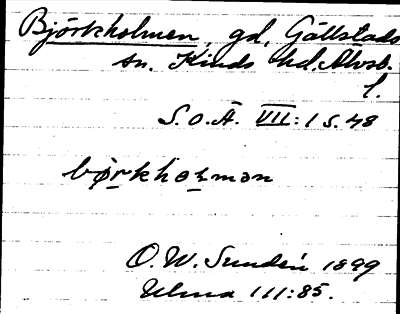 Björkholmen, gd, Gällstads
sn. Kinds hd. Älvsb.
l.
S.O.Ä. VII:1 s. 48
bǿrkhəlmən
O. W. Sundén 1899
Ulma 111:85.